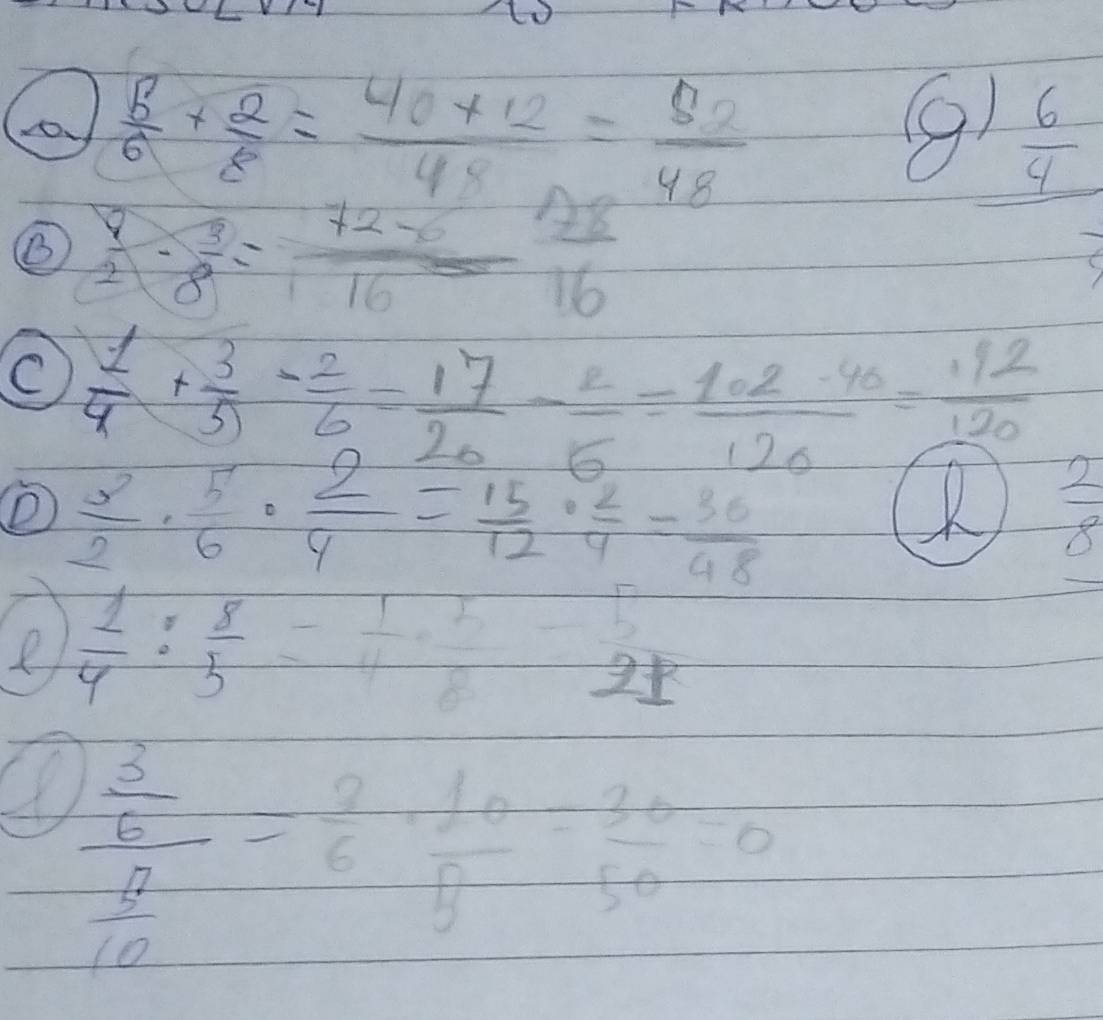 a) 5/6 + 2/8 = 40+12/48 = 52/48
B) 9/2 - 3/8 = 72-6/16 78/16
C) 1/4 + 3/5 - 2/6 = 17/20 - 2/6 = 102-40/120 = 142/120
D) 3/2 · 5/6 · 2/4 = 15/12 · 2/4 = 30/48
e) 1/4 : 8/5 = 1/4 · 5/8 = 5/21
f) 3/6 / 5/10 = 3/6 · 10/5 = 30/50 = 0
g) 6/4
h) 2/8